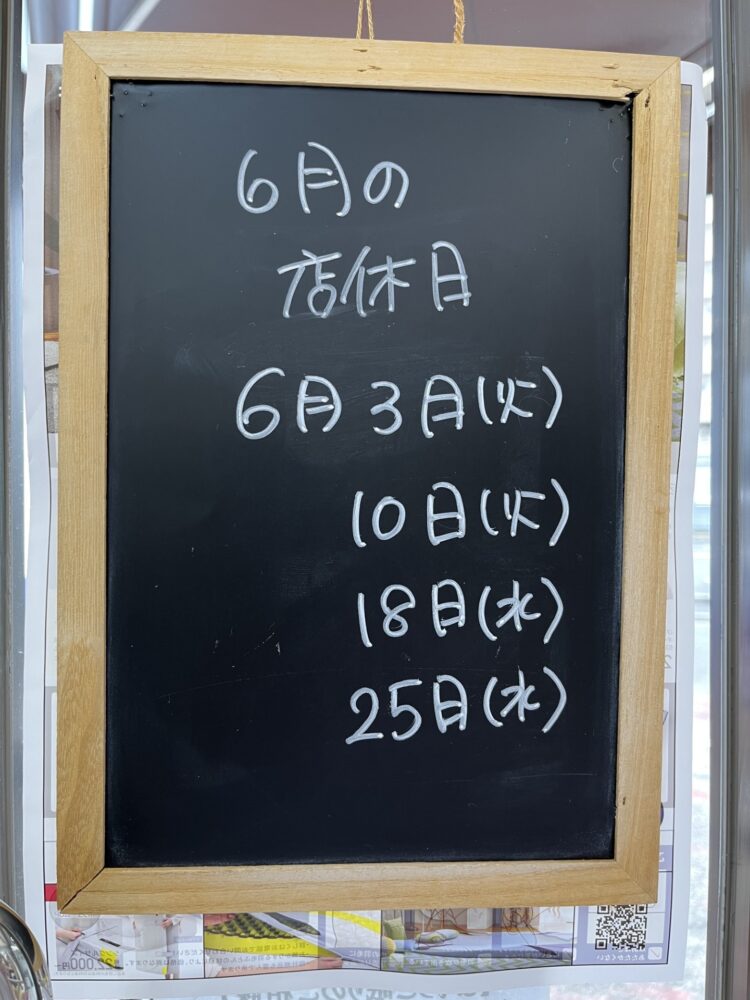 6月の
店休日
6月3日(火)
10日(火)
18日(水)
25日(水)